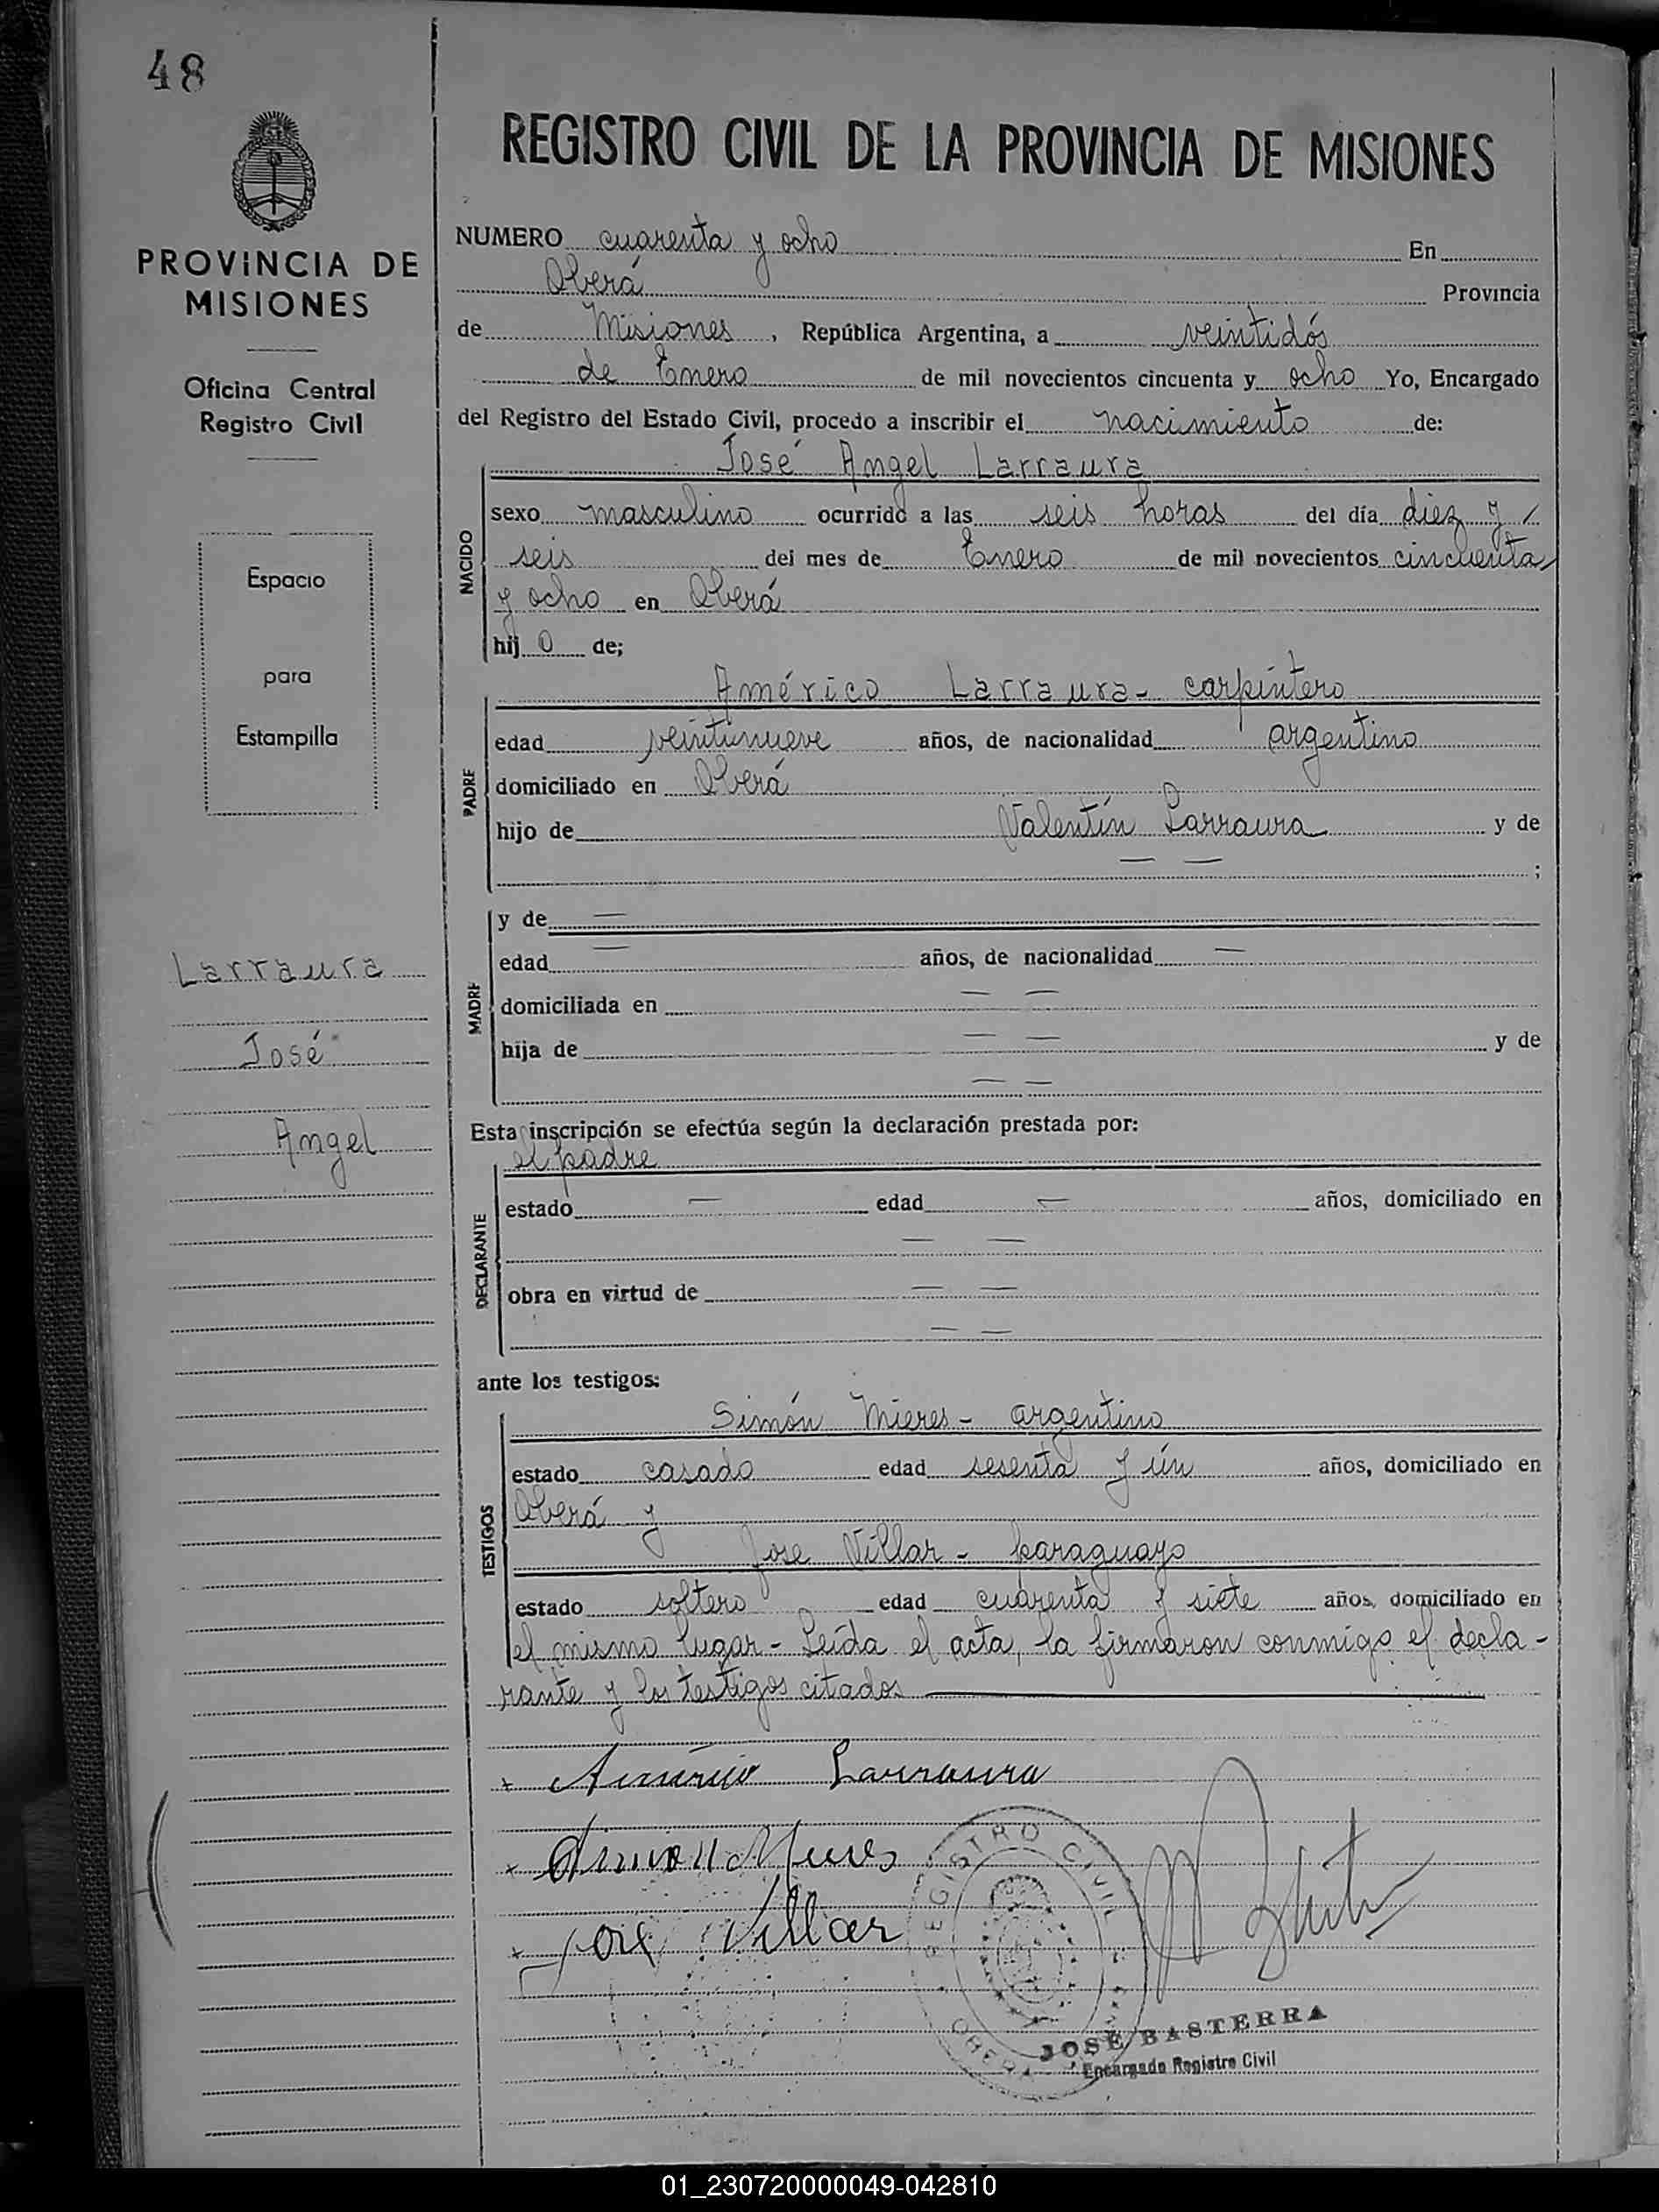 48
REGISTRO CIVIL DE LA PROVINCIA DE MISIONES
PROVINCIA DE
MISIONES
Oficina Central
Registro Civil
Espacio
para
Estampilla
Larraura
José
Angel
NUMERO cuarenta y ocho En
Oberá Provincia
de Misiones, República Argentina, a veintidós
de Enero de mil novecientos cincuenta y ocho Yo, Encargado
del Registro del Estado Civil, procedo a inscribir el nacimiento de:
José Angel Larraura
NACIDO
sexo masculino ocurrido a las seis horas del día diez y /
seis del mes de Enero de mil novecientos cincuenta
y ocho en Oberá
hij o de;
Américo Larraura - carpintero
PADRE
edad veintinueve años, de nacionalidad argentino
domiciliado en Oberá
hijo de Valentín Larraura y de
— — ;
MADRE
y de —
edad — años, de nacionalidad —
domiciliada en — —
hija de — — y de
— —
Esta inscripción se efectúa según la declaración prestada por:
el padre
DECLARANTE
estado — edad — años, domiciliado en
— —
obra en virtud de — —
— —
ante los testigos:
Simón Mieres - argentino
TESTIGOS
estado casado edad sesenta y ún años, domiciliado en
Oberá y
Jose Villar - paraguayo
estado soltero edad cuarenta y siete años, domiciliado en
el mismo lugar - Leída el acta, la firmaron conmigo el decla-
rante y los testigos citados
x Américo Larraura
x Simon Mieres
x José Villar
REGISTRO CIVIL
OBERA
JOSÉ BASTERRA
Encargado Registro Civil
01_230720000049-042810